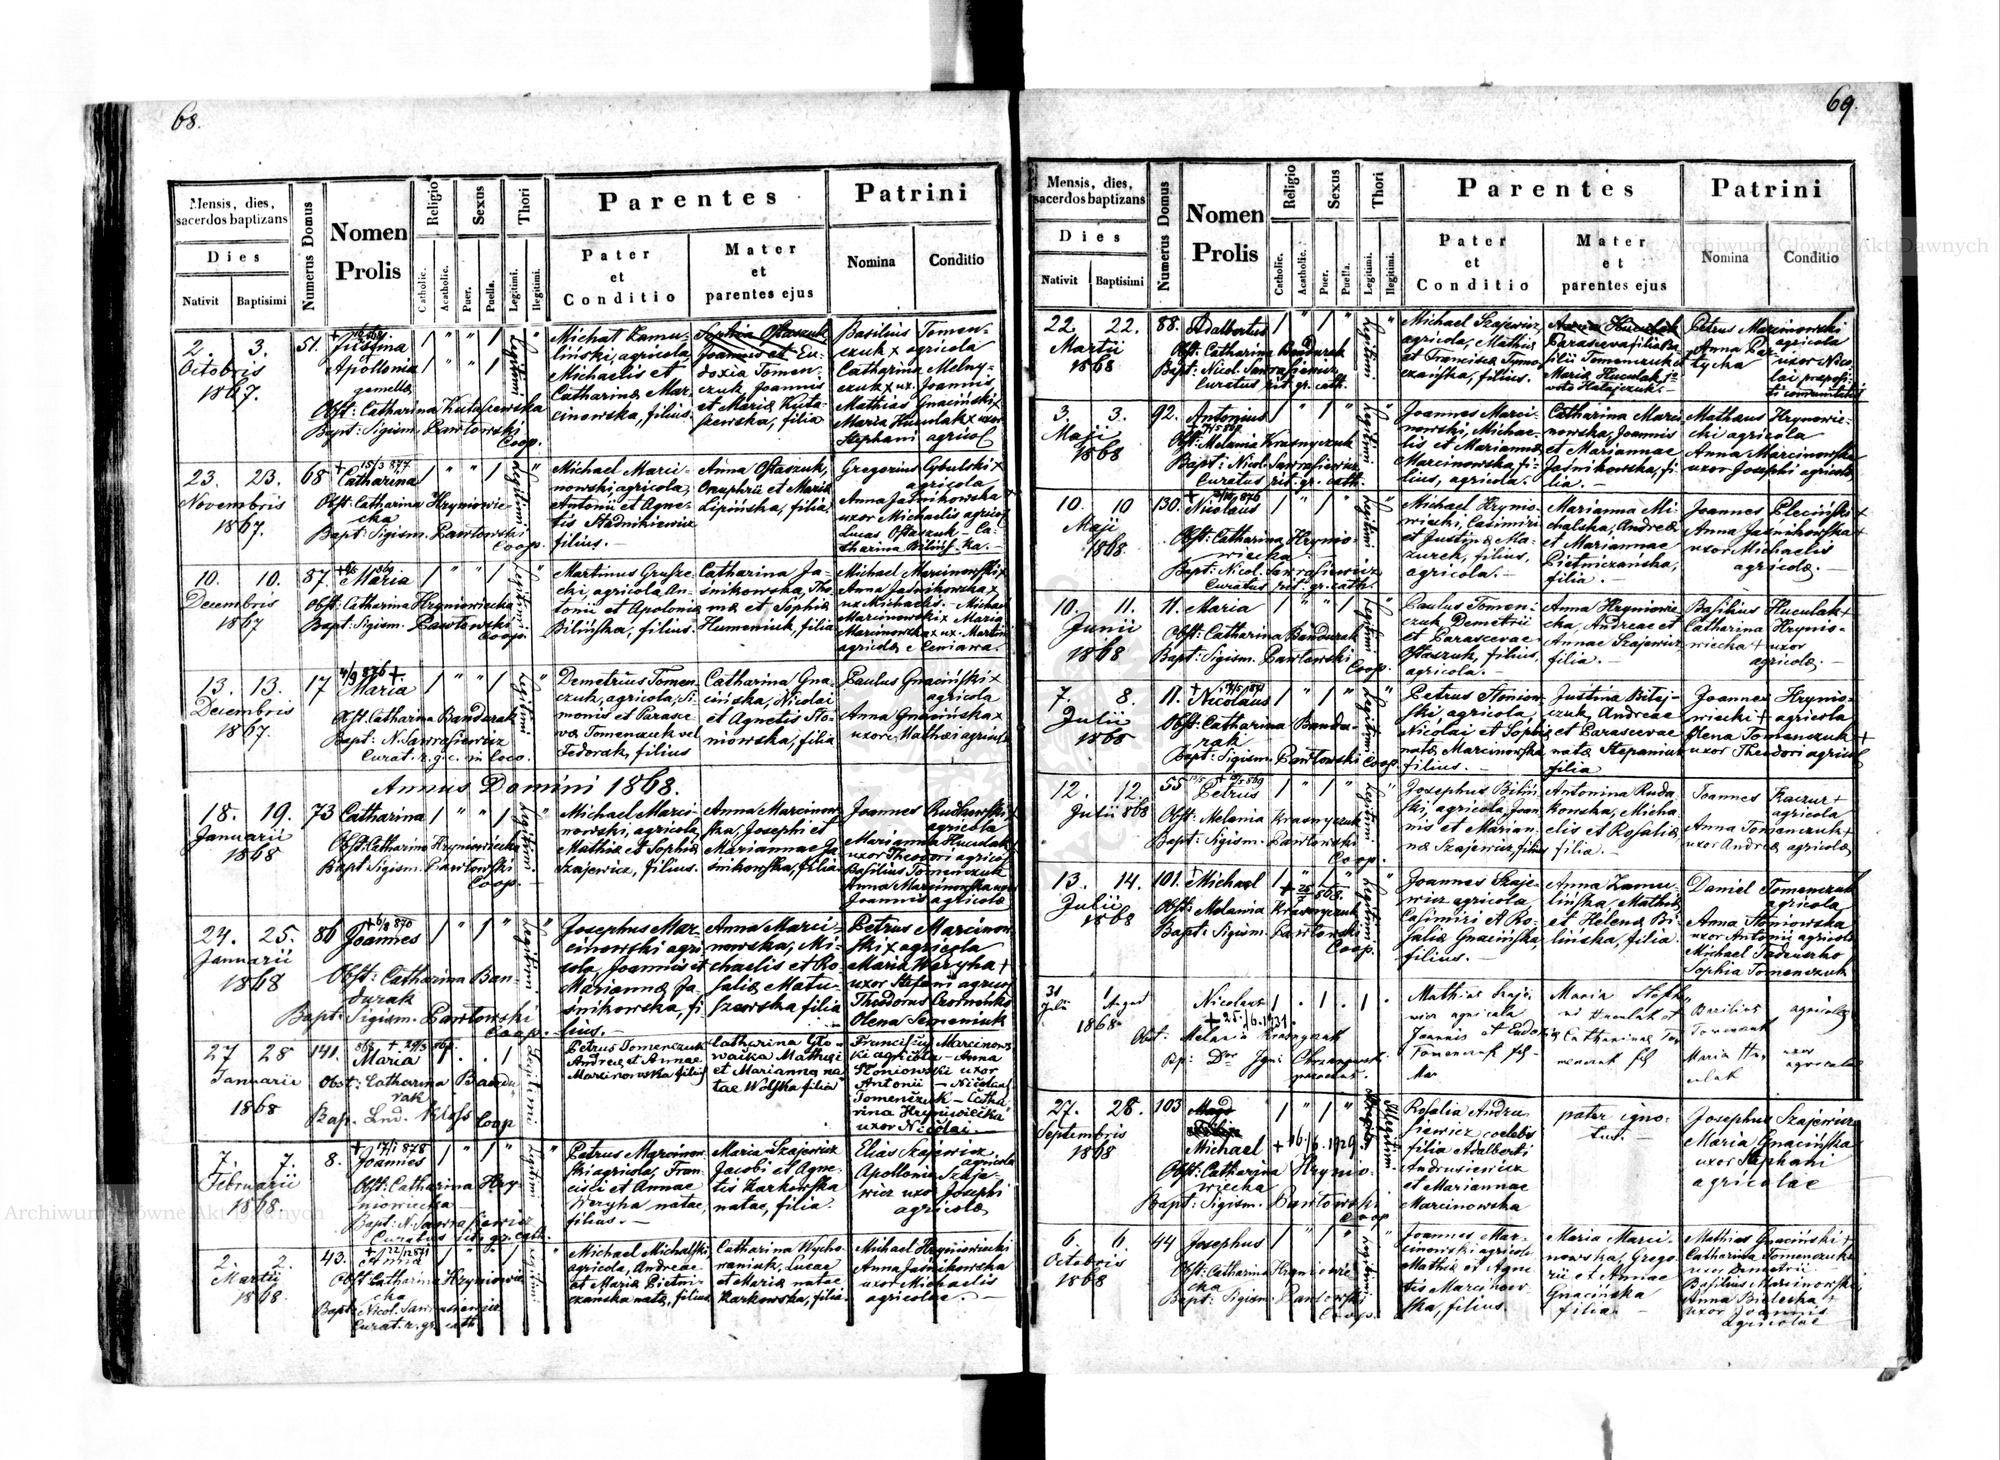 68.
Mensis, dies,
sacerdos baptizans
Dies
Nativit Baptisimi
Numerus Domus
Nomen
Prolis
Religio
Catholic. Acatholic.
Sexus
Puer. Puella.
Thori
Legitimi. Illegitimi.
Parentes
Pater
et
Conditio
Mater
et
parentes ejus
Patrini
Nomina Conditio
2. 3.
Octobris
1867.
51.
Justina
Apollonia
gemellæ
Obst: Catharina
Bapt: Sigism. Pawłowski
Coop.
agricola,
Michaelis et
Catharina Mar-
cinowska, filius.
Joannis et Eu-
doxia Tomen-
czuk Joannis
Basilius Tomen-
czuk x agricola
Catharina Melny-
czuk x ux. Joannis
Mathias Gnaciński x
Maria Huculak x uxor
Stephani agricol
23. 23.
Novembris
1867.
68
Catharina
Obst: Catharina Hryniowie-
cka
Bapt: Sigism. Pawłowski
Coop.
Michael Marci-
nowski, agricola,
Antonii et Agne-
tis Stadnikiewicz
filius.-
Anna Ostaszuk,
Onuphrii et Maria
Lipińska, filia.
Gregorius Cybulski x
agricola
Anna Jaśnikowska
uxor Michaelis agricol
Lucas Ostaszuk - Ca-
tharina Bilińs-ka.-
10. 10.
Decembris
1867
87
Maria
Obst: Catharina Hryniowiecka
Bapt: Sigism. Pawłowski
Coop.
Martinus
agricola, An-
tonii et Apolonia
Bilińska, filius.
Catharina Ja-
śnikowska, Tho-
mæ et Sophia
Humeniuk, filia
Michael Marcinowski x
Anna Jaśnikowska x
ux Michaelis. - Michael
Marcinowski x Maria
Marcinowska x ux. Martini
13. 13.
Decembris
1867.
17
Maria
Obst. Catharina Bandurak
Bapt: N. Sawrasiewicz
Curat. r. g. c. in loco.
Demetrius Tomen-
czuk, agricola, Si-
monis et Parasce
væ Tomenczuk vel
Fedorak, filius
Catharina Gna-
cińska, Nicolai
et Agnetis Sto-
niowska, filia
Paulus Gnaciński x
agricola
Anna Gnacińska x
Annus Domini 1868.
18. 19.
Januarii
1868
73
Catharina
Obst. Catharina Hryniowiecka
Bapt. Sigism. Pawłowski
Coop.
Michael Marci-
nowski, agricola,
Mathiæ et Sophia
Szajewicz, filius.
Anna Marcinow-
ska, Josephi et
Mariannæ Ja-
śnikowska, filia
Joannes Rudkowski x
agricola
Marianna Huculak x
uxor Theodori agricol
Basilius Tomenczuk
Anna Marcinowska uxor
Joannis agricolæ
24. 25.
Januarii
1868
86
Joannes
Obst: Catharina Ban-
durak
Bapt: Sigism. Pawłowski
Coop.
Josephus Mar-
cinowski agri-
cola, Joannis et
Mariannæ Ja-
śnikowska, fi-
lius.-
Anna Marci-
nowska, Mi-
chaelis et Ro-
salia Matu-
szewska filia
Petrus Marcinow-
ski x agricola
Maria Weryha +
uxor Stefani agricol
Olena Semeniuk
27 28
Januarii
1868
141.
Maria
Obst: Catharina Bandu-
rak
Coop
Petrus Tomenczuk
Andreæ et Annae
Marcinowska filius
Catharina Gło-
wacka Mathæi
et Marianna na-
tae Wolska filia
Francisus Marcinows
ki agricola - Anna
Stoniowski uxor
Antonii - Nicolaus
Tomenczuk - Catha-
rina Hryniwiecka
uxor Nicolai.-
7. 7.
Februarii
1868.
8.
Joannes
Obst: Catharina Hry-
niowiecka
Bapt: N. Sawrasiewicz
Curatus rit. gr. cath.
Petrus Marcinow-
ski agricola, Fran-
cisci et Annae
Weryha natae,
filius.-
Maria Szajewicz
Jacobi et Agne-
tis Karkowska
natae, filia.
Elias Szajewicz
agricola
Apollonia Szaje-
wicz uxor Josephi
agricolæ
2. 2.
Martii
1868.
43.
Anna
Obst: Catharina Hryniowie-
cka
Bapt: Nicol. Sawrasiewicz
Curat. r. gr. cath
Michael Michalski,
agricola, Andreae
et Maria Pietni-
czańska nata, filius
Catharina Wycho-
waniuk, Lucae
et Maria natae
Karkowska, filia.
Michael Hryniowiecki
Anna Jaśnikowska
uxor Michaelis
agricolae.-
69.
Mensis, dies,
sacerdos baptizans
Dies
Nativit Baptisimi
Numerus Domus
Nomen
Prolis
Religio
Catholic. Acatholic.
Sexus
Puer. Puella.
Thori
Legitimi. Illegitimi.
Parentes
Pater
et
Conditio
Mater
et
parentes ejus
Patrini
Nomina Conditio
22. 22.
Martii
1868
88.
Adalbertus
Obst: Catharina Bandurak
Bapt: Nicol. Sawrasiewicz
Curatus rit. gr. cath.
Michael Szajewicz,
agricola, Mathiæ
et Francisca Tymo-
czańska, filius.
Parasceva filia Ba-
silii Tomenczuk et
Maria Huculak
Petrus Marcinowski
agricola
uxor Nico-
lai
3. 3.
Maji
1868
92.
Antonius
Obst: Melania Krasnyczuk
Bapt: Nicol. Sawrasiewicz
Curatus rit. gr. cath.
Joannes Marci-
nowski, Michae-
lis et Marianna
Marcinowska, fi-
lius, agricola.
Catharina Marci-
nowska, Joannis
et Mariannae
Jaśnikowska, fi-
lia.-
Mathaus Hryniowie-
cki agricola
Anna Marcinowska
uxor Josephi agricolæ
10. 10
Maji
1868
130.
Nicolaus
Obst: Catharina Hrynio-
wiecka
Bapt: Nicol. Sawrasiewicz
Curatus rit. gr. cath
Michael Hrynio-
wiecki, Casimiri
et Justina Ma-
zurek, filius,
agricola.-
Marianna Mi-
chalska, Andreæ
et Mariannae
Pietniczańska,
filia.-
Joannes Pleciński x
Anna Jaśnikowska +
uxor Michaelis
agricolæ.-
10. 11.
Junii
1868
11.
Maria
Obst: Catharina Bandurak
Bapt: Sigism. Pawłowski
Coop.
Paulus Tomen-
czuk Demetrii
et Parascevae
Ostaszuk, filius,
agricola.
Anna Hryniowie-
cka, Andreae et
Annae Szajewicz
filia.-
Basilius Huculak +
Catharina Hrynio-
wiecka + uxor
agricolæ.-
7. 8.
Julii
1868
11.
Nicolaus
Obst: Catharina Bandu-
rak
Bapt: Sigism. Pawłowski
Coop.
Petrus Stoniow-
ski agricola,
Nicolai et Sophiæ
natæ Marcinowska
filius.-
Justina Bitej-
czuk, Andreae
et Parascevae
natæ Stepaniuk
filia
Joannes Hrynio-
wiecki + agricola
Olena Tomenczuk +
uxor Theodori agricol
12. 12.
Julii 1868
55
Petrus
Obst: Melania Krasnyczuk
Bapt: Sigism. Pawłowski
Coop.
Josephus Biliń-
ski, agricola, Joan-
nis et Marian-
næ Szajewicz, filius
Antonina Ruda-
kowska, Micha-
elis et Rosaliæ,
filia.-
Joannes Kaczur +
agricola
Anna Tomenczuk +
uxor Andreæ agricolæ
13. 14.
Julii
1868
101.
Michael
Obst: Melania Krasnyczuk
Bapt: Sigism. Pawłowski
Coop.
Joannes Szaje-
wicz agricola,
Casimiri et Ro-
salia Gnacińska,
filius.
Anna Zamu-
lińska, Mathiæ
et Helena Bi-
lińska, filia.
Daniel Tomenczuk
agricola
Anna Stoniowska
uxor Antonii agricolæ
Michael Tadeuszko
Sophia Tomenczuk
31 1
Julii
1868
Nicolaus
+ 25./6.1931.
Obst: Melania Krasnyczuk
Mathias Szaje-
wicz agricola
Joannis et Eudoxia
Tomenczuk fil-
ius
Maria Steph-
ni Huculak et
Catharinae To-
menczuk fil
Basilius agricola
Tomenczuk
Maria Hu- uxor
culak agricolae
27. 28.
Septembris
1868
103
Michael
+ 16./6.1929.
Obst: Catharina Hrynio-
wiecka
Bapt: Sigism. Pawłowski
Coop
Rosalia Andru-
siewicz coelebs
filia Adalberti
Andrusiewicz
et Mariannae
Marcinowska
pater igno-
tus.-
Josephus Szajewicz
Maria Gnacińska
uxor Stephani
agricolae
6. 6.
Octobris
1868
44
Josephus
Obst: Catharina Hryniowie-
cka
Bapt: Sigism. Pawłowski
Coop.
Joannes Mar-
cinowski agricola
Mathiæ et Agne-
tis Marcinow-
ska, filius.
Maria Marci-
nowska, Grego-
rii et Annae
Gnacińska
filia.-
Mathias Gnaciński +
Catharina Tomenczuk x
uxor Demetrii -
Basilius Marcinowski,
Anna Bialeska +
uxor Joannis
agricolae
Archiwum Główne Akt Dawnych
Archiwum Główne Akt Dawnych